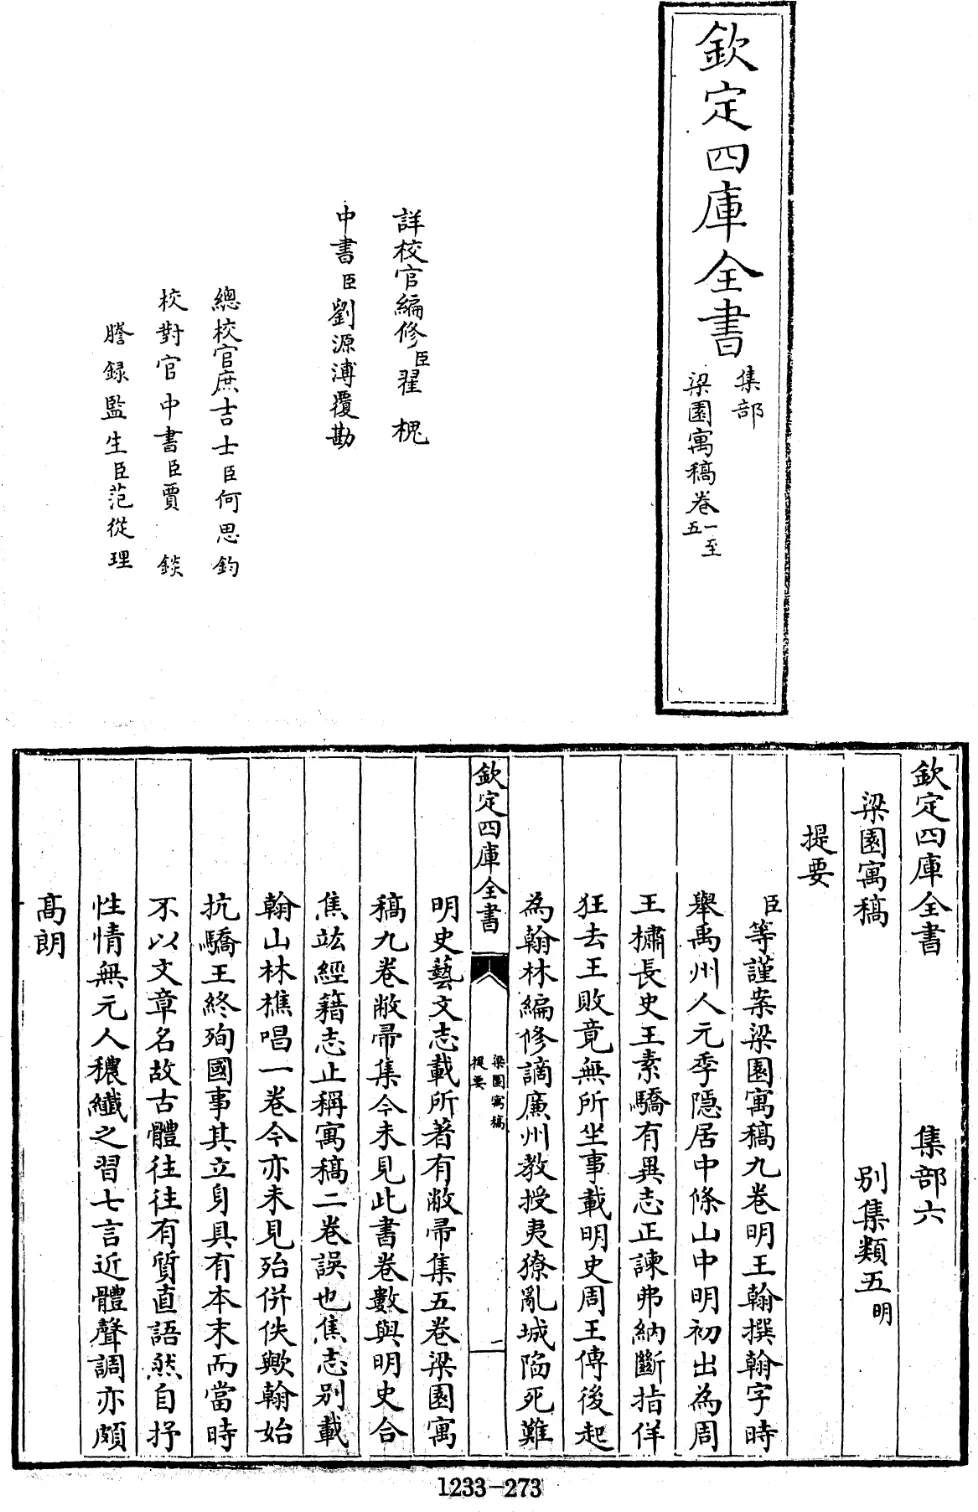 欽定四庫全書
集部
梁園寓稿卷一至五
詳校官編修臣翟槐
中書臣劉源溥覆勘
總校官庶吉士臣何思鈞
校對官中書臣賈錟
謄錄監生臣范從理
欽定四庫全書 集部六
梁園寓稿 別集類五明
提要
臣等謹案梁園寓稿九卷明王翰撰翰字時
舉禹州人元季隱居中條山中明初出為周
王橚長史王素驕有異志正諫弗納斷指佯
狂去王敗竟無所坐事載明史周王傳後起
為翰林編修謫廉州教授夷獠亂城陷死難
欽定四庫全書 梁園寓稿 提要 一
明史藝文志載所著有敝帚集五卷梁園寓
稿九卷敝帚集今未見此書卷數與明史合
焦竑經籍志止稱寓稿二卷誤也焦志別載
翰山林樵唱一卷今亦未見殆併佚歟翰始
抗驕王終殉國事其立身具有本末而當時
不以文章名故古體往往有質直語然自抒
性情無元人穠纖之習七言近體聲調亦頗
高朗
1233-273